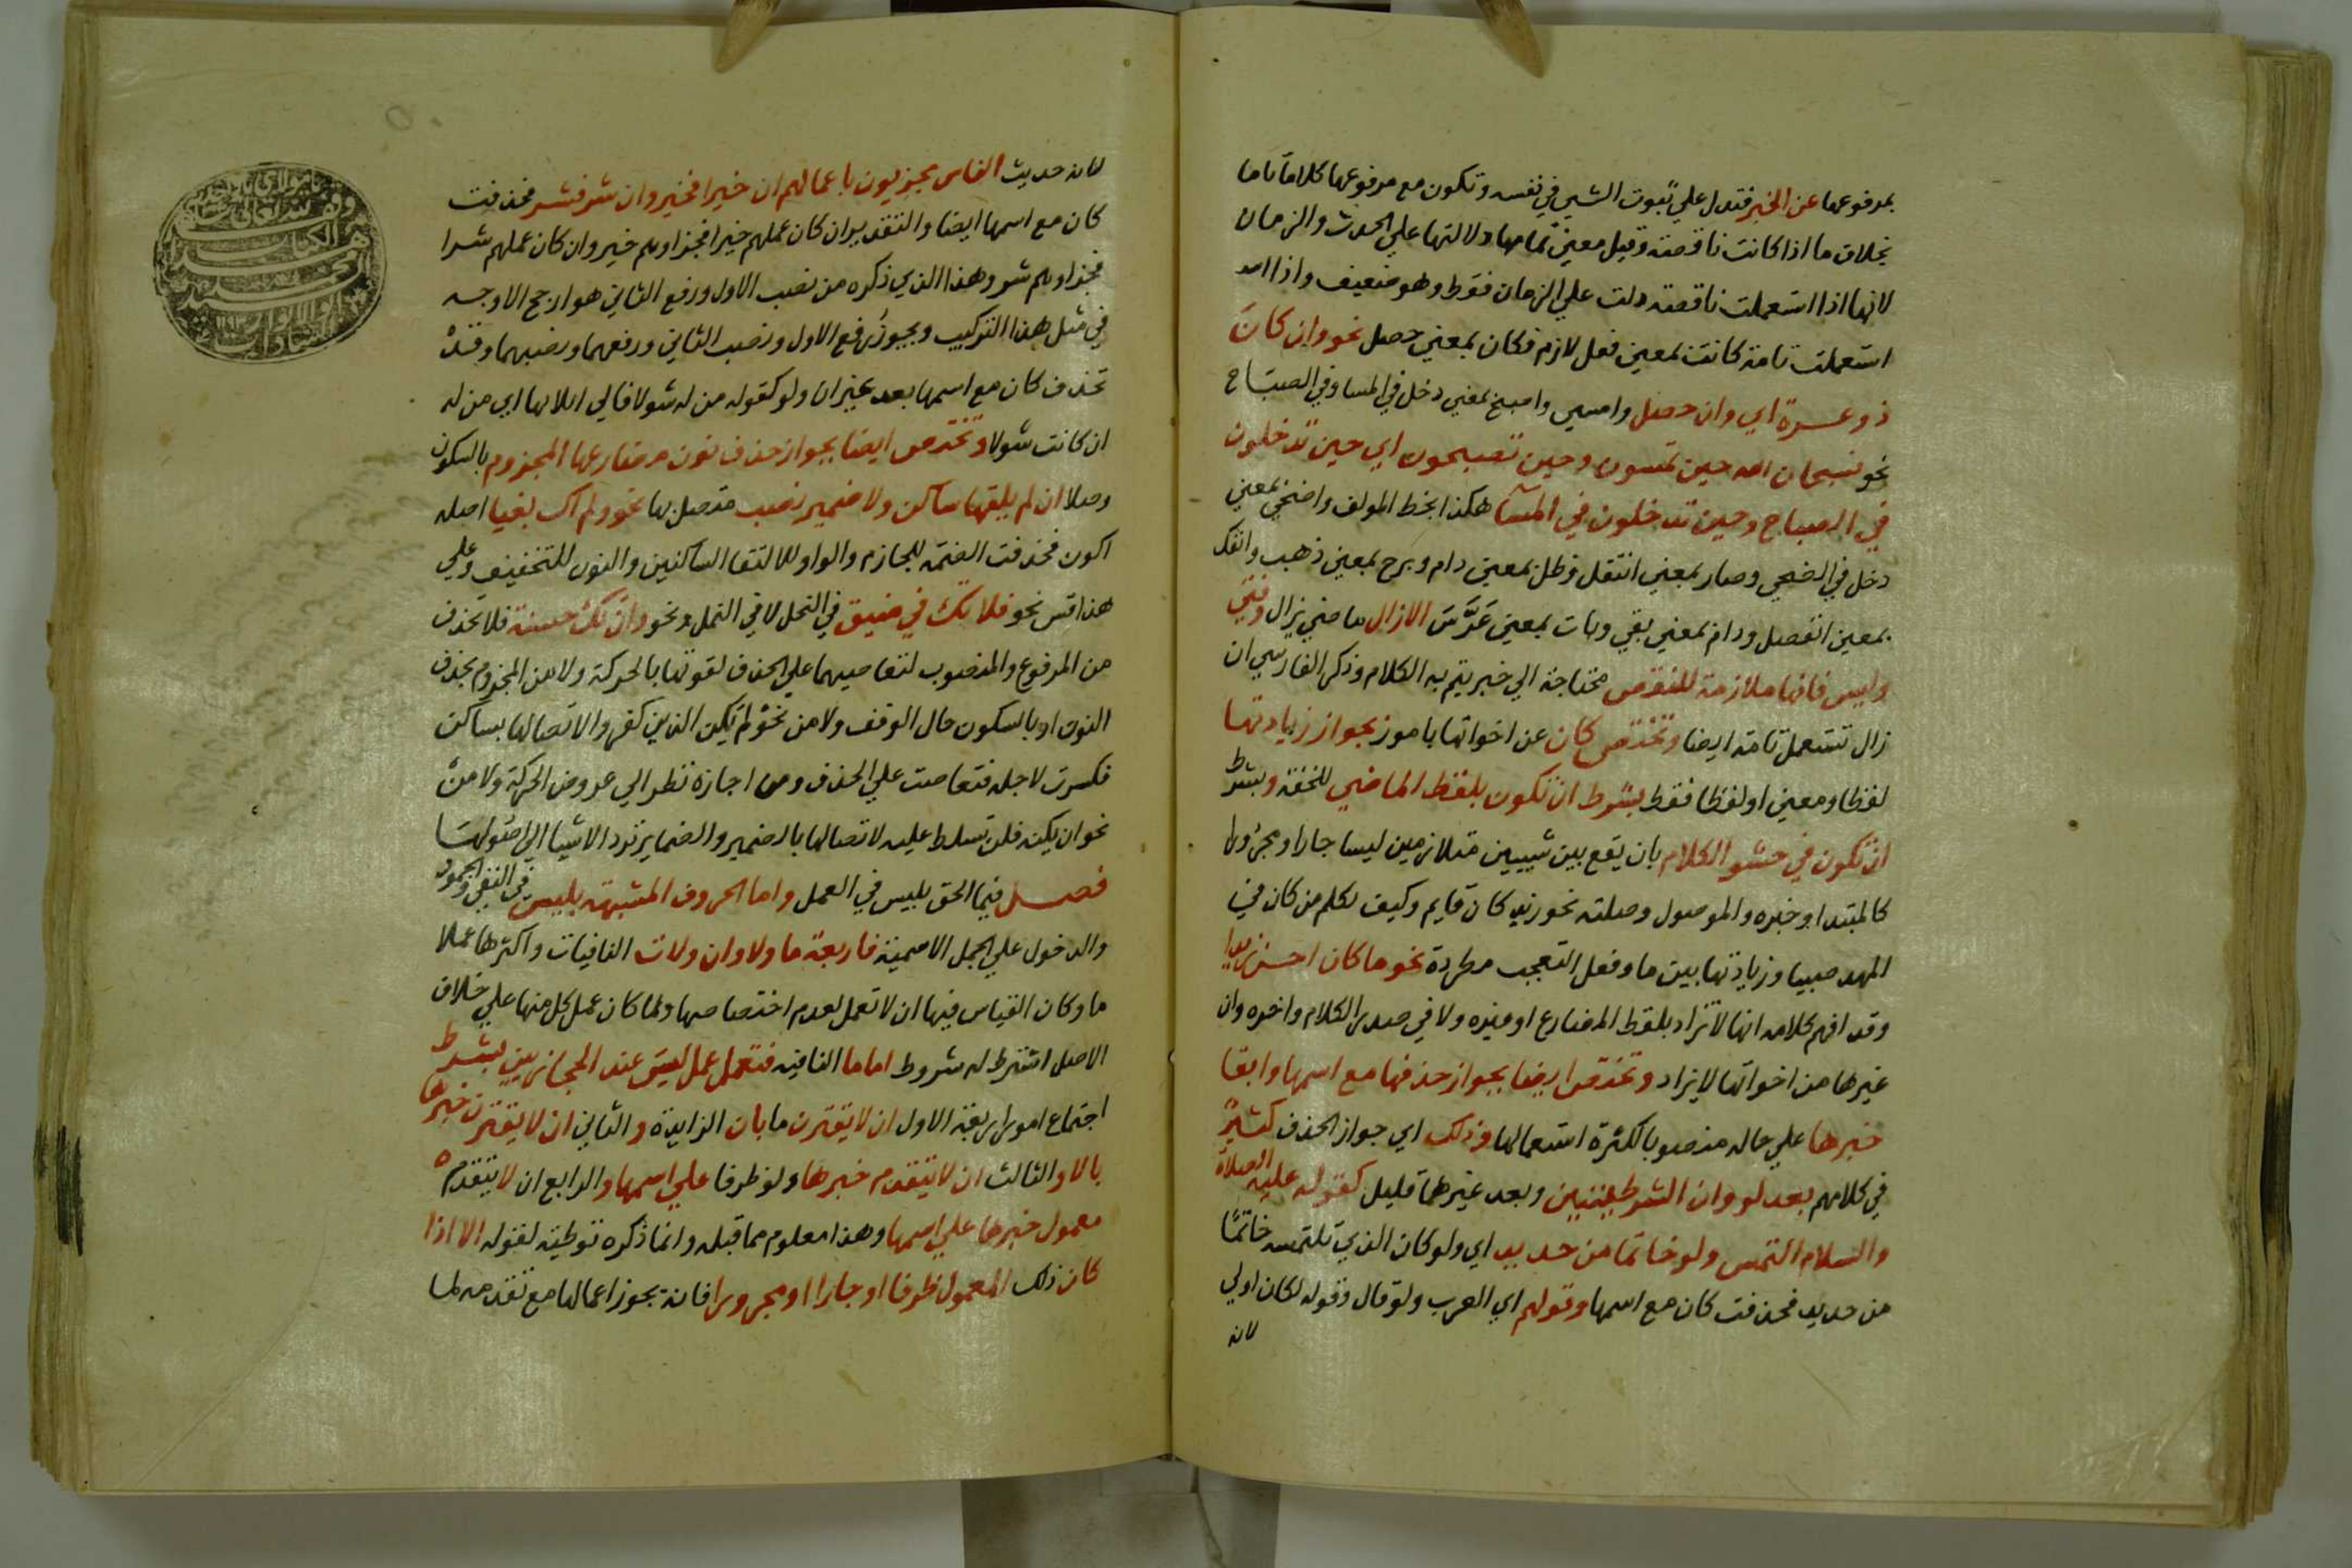 بمرفوعها عن الخبر فتدل علي ثبوت الشي في نفسه وتكون مع مرفوعها كلاما تاما
بخلاف ما اذا كانت ناقصة وقيل معني تمامها دلالتها علي الحدث والزمان
لانها اذا استعملت ناقصة دلت علي الزمان فقط وهو ضعيف واذا
استعملت تامة كانت بمعني فعل لازم فكان بمعني حصل نحو وان كان
ذو عسرة اي وان حصل وامسي واصبح بمعني دخل في المسا وفي الصباح
نحو فسبحان الله حين تمسون وحين تصبحون اي حين تدخلون
في الصباح وحين تدخلون في المسآ هكذا بخط المولف واضحي بمعني
دخل في الضحي وصار بمعني انتقل وظل بمعني دام وبرح بمعني ذهب وانفك
بمعني انفصل ودام بمعني بقي وبات بمعني عرس الا زال ماضي يزال وفتي
وليس فانها ملازمة للنقص محتاجة الي خبر يتم به الكلام وذكر الفارسي ان
زال تستعمل تامة ايضا وتختص كان عن اخواتها بامور بجواز زيادتها
لفظا ومعني او لفظا فقط بشرط ان تكون بلفظ الماضي للخفة وبشرط
ان تكون في حشو الكلام بان يقع بين شييين متلازمين ليسا جارا ومجرورا
كالمبتدا وخبره والموصول وصلته نحو زيد كان قايم وكيف نكلم من كان في
المهد صبيا وزيادتها بين ما وفعل التعجب مطردة نحو ما كان احسن زيدا
وقد افهم كلامه انها لا تزاد بلفظ المضارع او غيره ولا في صدر الكلام واخره وان
غيرها من اخواتها لا يزاد وتختص ايضا بجواز حذفها مع اسمها وابقا
خبرها علي حاله منصوبا لكثرة استعمالها وذلك اي جواز الحذف كثير
في كلامهم بعد لو وان الشرطيتين وبعد غيرهما قليل كقوله عليه الصلاة
والسلام التمس ولو خاتما من حديد اي ولو كان الذي تلتمسه خاتما
من حديد فحذفت كان مع اسمها وقولهم اي العرب ولو قال وقوله لكان اولي
لانه
لانه حديث الناس مجزيون باعمالهم ان خيرا فخير وان شر فشر فحذفت
كان مع اسمها ايضا والتقدير ان كان عملهم خيرا فجزاوهم خير وان كان عملهم شرا
فجزاوهم شر وهذا الذي ذكره من نصب الاول ورفع الثاني هو ارجح الاوجه
في مثل هذا التركيب ويجوز رفع الاول ونصب الثاني ورفعهما ونصبهما وقد
تحذف كان مع اسمها بعد غير ان ولو كقوله من لد شولا فالي اتلائها اي من لد
ان كانت شولا وتختص ايضا بجواز حذف نون مضارعها المجزوم بالسكون
وصلا ان لم يلقها ساكن ولا ضمير نصب متصل بها نحو ولم اك بغيا اصله
اكون فحذفت الضمة للجازم والواو لالتقا الساكنين والنون للتخفيف وعلي
هذا قس نحو فلا تك في ضيق في النحل لا في النمل ونحو وان تك حسنة فلا تحذف
من المرفوع والمنصوب لتعاصيهما علي الحذف لقوتها بالحركة ولا من المجزوم بحذف
النون او بالسكون حال الوقف ولا من نحو لم يكن الذين كفروا لاتصالها بساكن
فكسرت لاجله فتعاصت علي الحذف ومن اجازه نظر الي عروض الحركة ولا من
نحو ان يكنه فلن تسلط عليه لاتصالها بالضمير والضماير ترد الاشيا الي اصولها
فصل فيما الحق بليس في العمل واما الحروف المشبهة بليس في النفي والجمود
والدخول علي الجمل الاسمية فاربعة ما ولا وان ولات النافيات واكثرها عملا
ما وكان القياس فيها ان لا تعمل لعدم اختصاصها ولما كان عمل كل منها علي خلاف
الاصل اشترط له شروط اما ما النافية فتعمل عمل ليس عند الحجازيين بشرط
اجتماع امور اربعة الاول ان لا يقترن ما بان الزايدة والثاني ان لا يقترن خبرها
بالا والثالث ان لا يتقدم خبرها ولو ظرفا علي اسمها والرابع ان لا يتقدم
معمول خبرها علي اسمها وهذا معلوم مما قبله وانما ذكره توطية لقوله الا اذا
كان ذلك المعمول ظرفا او جارا او مجرورا فانه يجوز اعمالها مع تقدمه لما